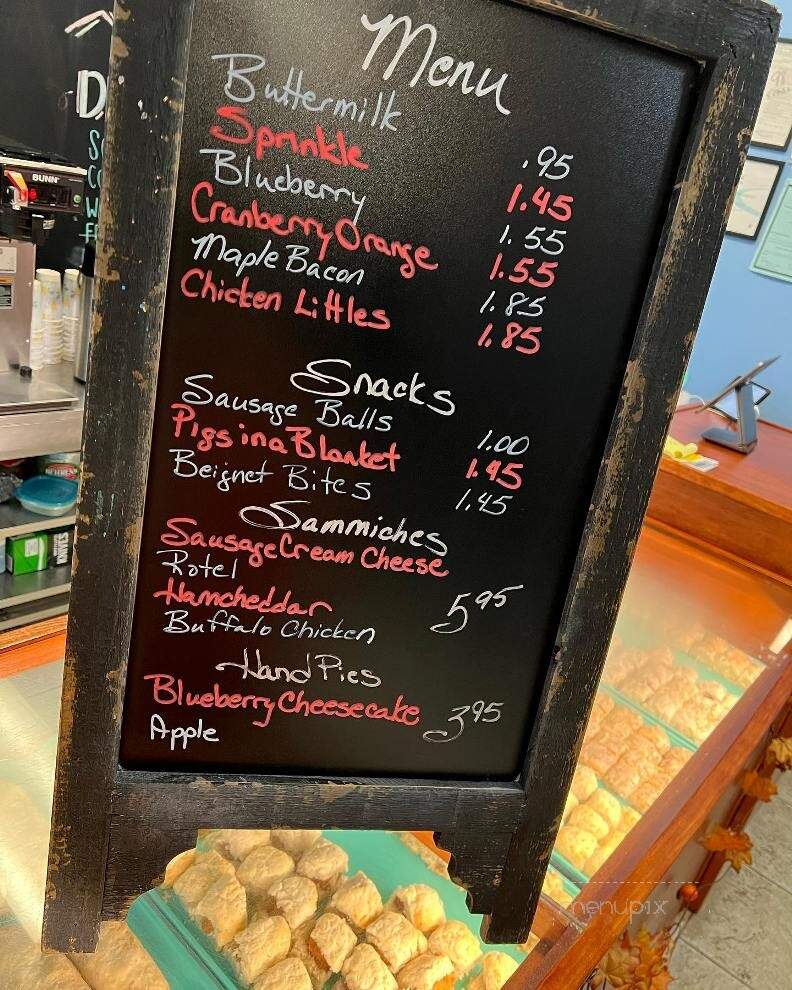 Menu
Buttermilk .95
Sprinkle 1.45
Blueberry 1.55
Cranberry Orange 1.55
Maple Bacon 1.85
Chicken Littles 1.85
Snacks
Sausage Balls 1.00
Pigs in a Blanket 1.45
Beignet Bites 1.45
Sammiches
Sausage Cream Cheese
Rotel
Hamcheddar 5.95
Buffalo Chicken
Hand Pies
Blueberry Cheesecake 3.95
Apple
BUNN
menupix